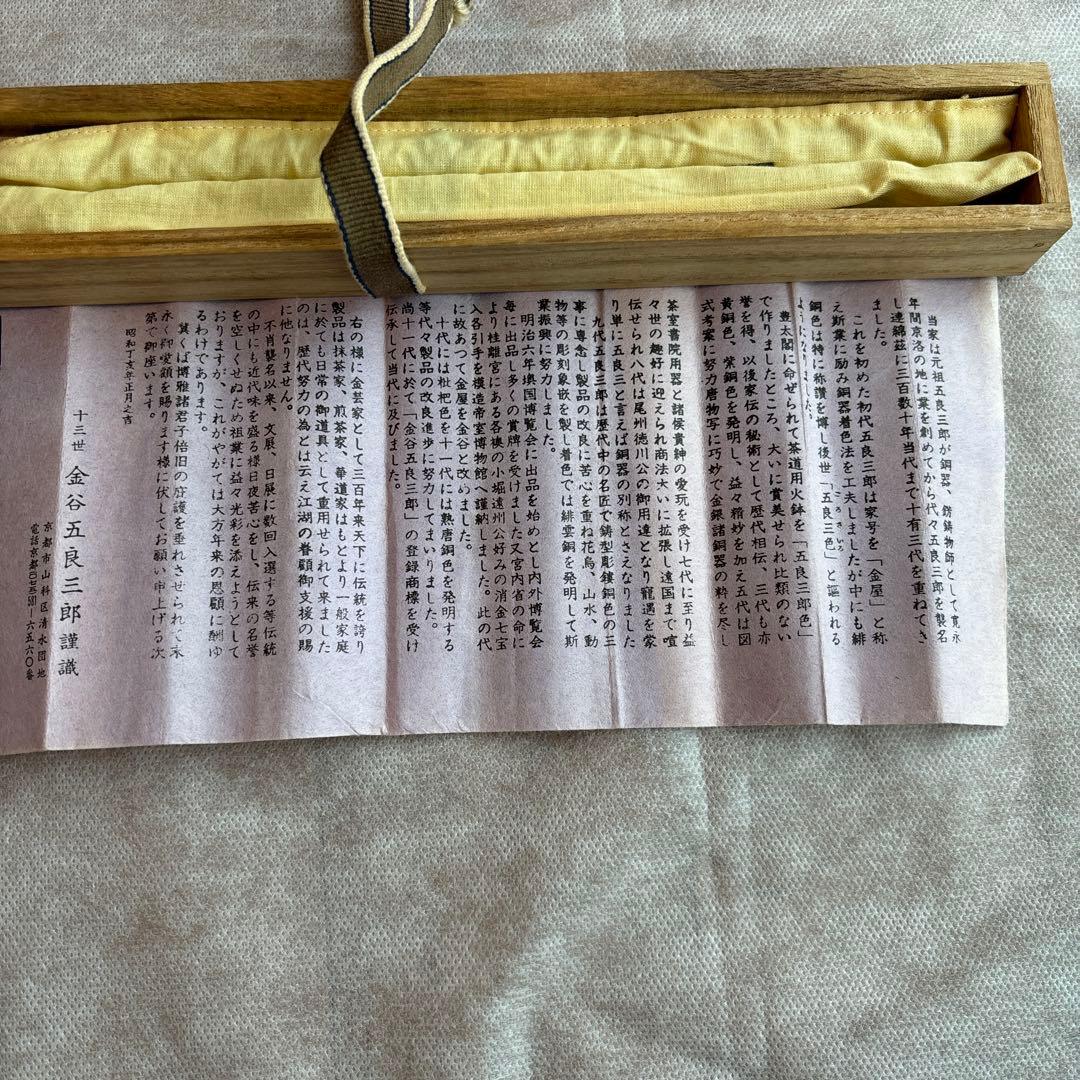 当家は元祖五良三郎が銅器、鋳鋳物師として寛永
年間京洛の地に業を創めてから代々五良三郎を襲名
し連綿茲に三百数十年当代まで十有三代を重ねてき
ました。
これを初めた初代五良三郎は家号を「金屋」と称
え斯業に励み銅器着色法を工夫しましたが中にも緋
銅色は特に称讃を博し後世「五良三色」と謳われる
ようになりました。
豊太閤に命ぜられて茶道用火鉢を「五良三郎色」
で作りましたところ、大いに賞美せられ比類のない
誉を得、以後家伝の秘術として歴代相伝、三代も亦
黄銅色、紫銅色を発明し、益々精妙を加え五代は図
式考案に努力唐物写に巧妙で金銀諸銅器の粋を尽し
茶室書院用器と諸侯貴紳の愛玩を受け七代に至り益
々世の趣好に迎えられ商法大いに拡張し遠国まで喧
伝せられ八代は尾州徳川公の御用達となり寵遇を蒙
り単に五良三と言えば銅器の別称とさえなりました
九代五良三郎は歴代中の名匠で鋳型彫鏤銅色の三
事に専念し製品の改良に苦心を重ね花鳥、山水、動
物等の彫刻象嵌を製し着色では緋雲銅を発明して斯
業振興に努力しました。
明治六年墺国博覧会に出品を始めとし内外博覧会
毎に出品し多くの賞牌を受けました又宮内省の命に
より桂離宮にある各襖の小堀遠州公好みの消金七宝
入各引手を模造帝室博物館へ謹納しました。此の代
に故あつて金屋を金谷と改めました。
十代には枇杷色を十一代には熟唐銅色を発明する
等代々製品の改良進歩に努力してまいりました。
尚十一代に於て「金谷五良三郎」の登録商標を受け
伝承して当代に及びました。
右の様に金芸家として三百年来天下に伝統を誇り
製品は抹茶家、煎茶家、華道家はもとより一般家庭
に於ても日常の御道具として重用せられて来ました
のは、歴代努力の為とは云え江湖の眷顧御支援の賜
に他なりません。
不肖襲名以来、文展、日展に数回入選する等伝統
の中にも近代味を盛る様日夜苦心をし、伝来の名誉
を空しくせぬため祖業に益々光彩を添えようとして
おりますが、これがやがては大方年来の恩顧に酬ゆ
るわけであります。
冀くば博雅諸君子倍旧の庇護を垂れさせられて末
永く御愛顧を賜ります様に伏してお願い申上げる次
第で御座います。
昭和丁亥年正月之吉
十三世 金谷五良三郎謹識
京都市山科区清水団地